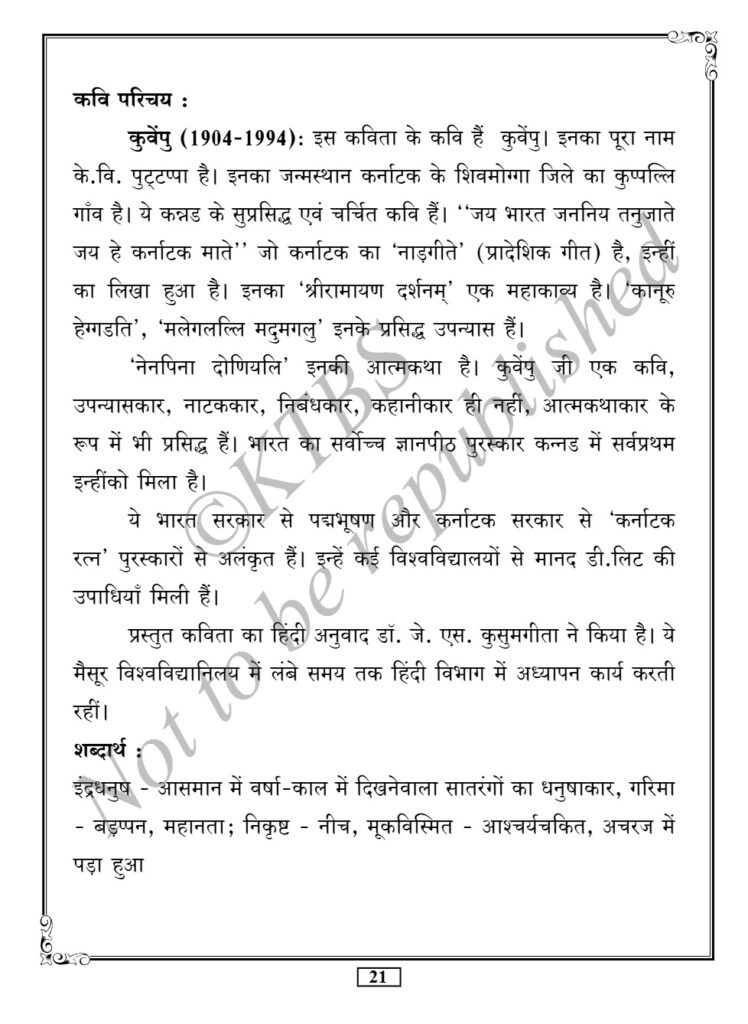 कवि परिचय :
कुवेंपु (1904-1994): इस कविता के कवि हैं कुवेंपु। इनका पूरा नाम
के.वि. पुट्टप्पा है। इनका जन्मस्थान कर्नाटक के शिवमोग्गा जिले का कुप्पल्लि
गाँव है। ये कन्नड के सुप्रसिद्ध एवं चर्चित कवि हैं। ''जय भारत जननिय तनुजाते
जय हे कर्नाटक माते'' जो कर्नाटक का 'नाड़गीते' (प्रादेशिक गीत) है, इन्हीं
का लिखा हुआ है। इनका 'श्रीरामायण दर्शनम्' एक महाकाव्य है। 'कानूरु
हेग्गडति', 'मलेगलल्लि मदुमगलु' इनके प्रसिद्ध उपन्यास हैं।
'नेनपिना दोणियलि' इनकी आत्मकथा है। कुवेंपु जी एक कवि,
उपन्यासकार, नाटककार, निबंधकार, कहानीकार ही नहीं, आत्मकथाकार के
रूप में भी प्रसिद्ध हैं। भारत का सर्वोच्च ज्ञानपीठ पुरस्कार कन्नड में सर्वप्रथम
इन्हींको मिला है।
ये भारत सरकार से पद्मभूषण और कर्नाटक सरकार से 'कर्नाटक
रत्न' पुरस्कारों से अलंकृत हैं। इन्हें कई विश्वविद्यालयों से मानद डी.लिट की
उपाधियाँ मिली हैं।
प्रस्तुत कविता का हिंदी अनुवाद डॉ. जे. एस. कुसुमगीता ने किया है। ये
मैसूर विश्वविद्यानिलय में लंबे समय तक हिंदी विभाग में अध्यापन कार्य करती
रहीं।
शब्दार्थ :
इंद्रधनुष - आसमान में वर्षा-काल में दिखनेवाला सातरंगों का धनुषाकार, गरिमा
- बड़प्पन, महानता; निकृष्ट - नीच, मूकविस्मित - आश्चर्यचकित, अचरज में
पड़ा हुआ
©KTBS
Not to be republished
21